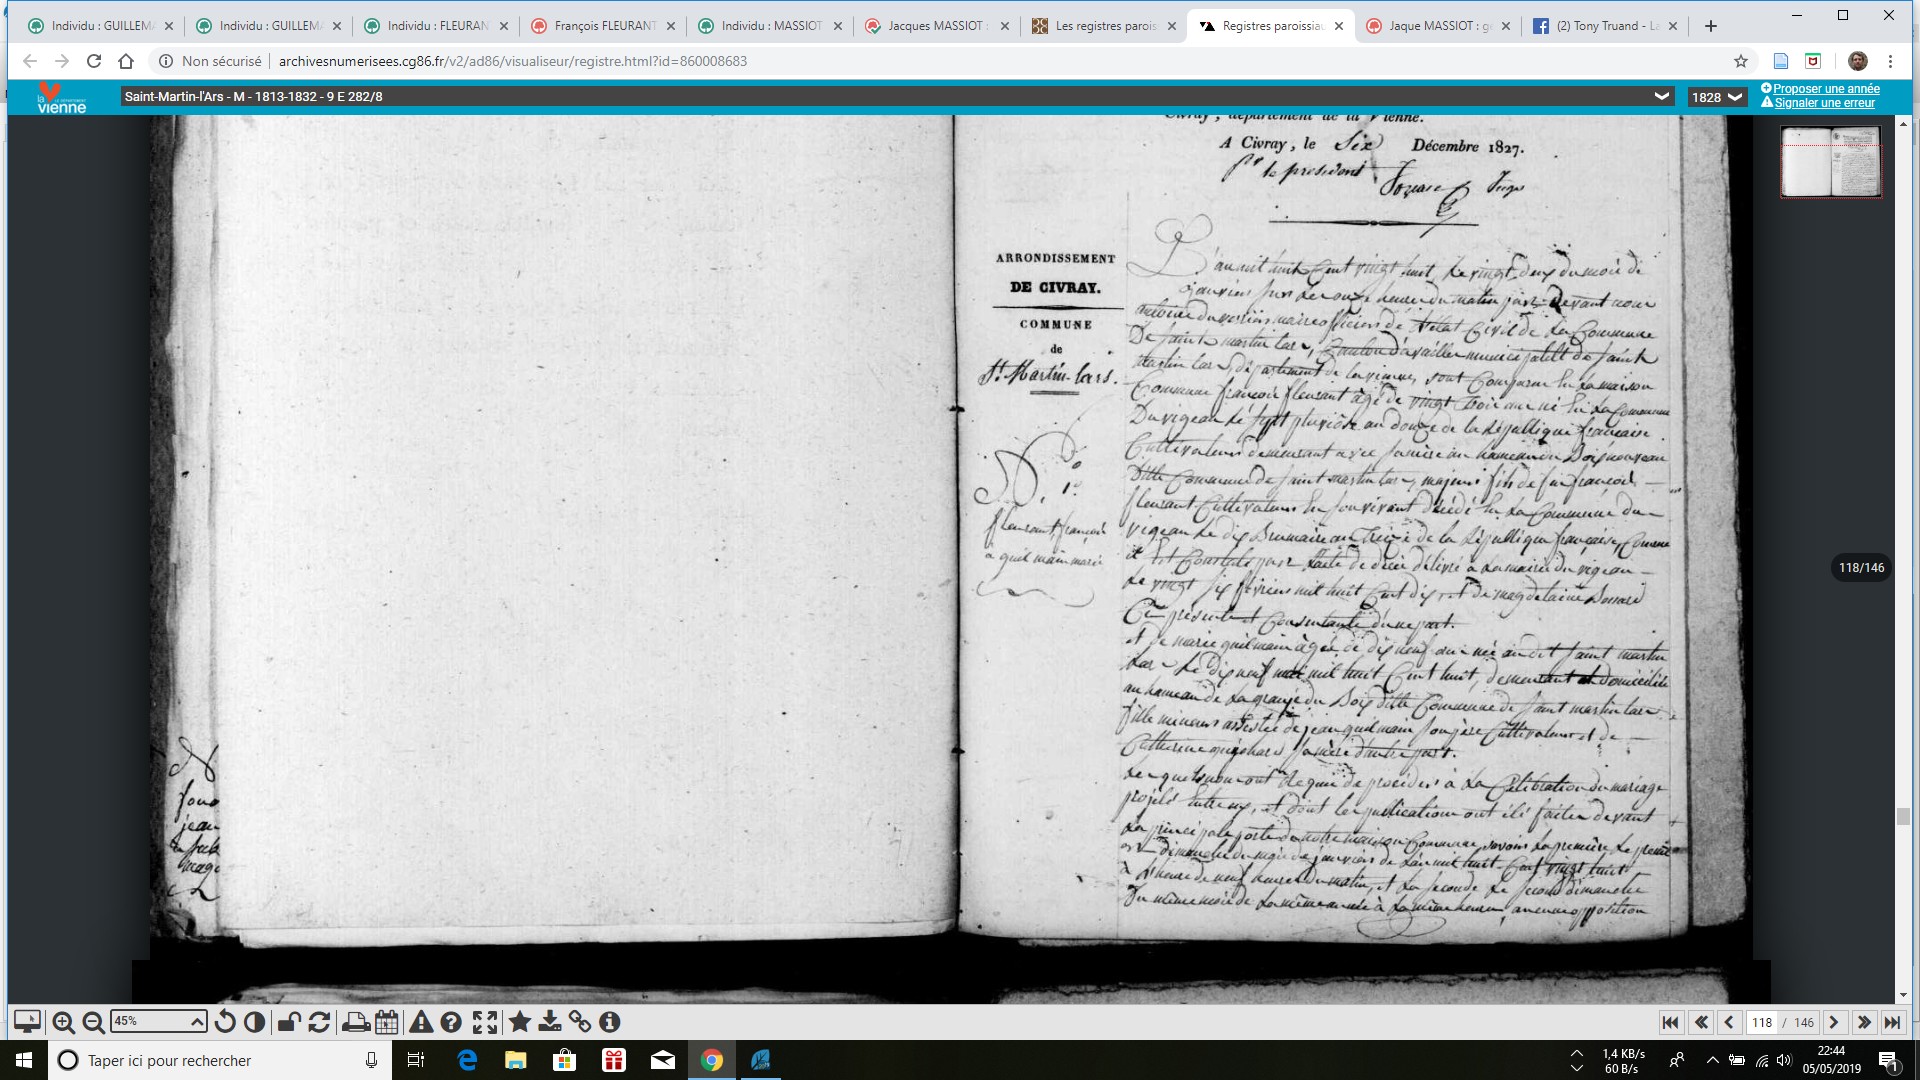 Individu : GUILLEMA
Individu : GUILLEMA
Individu : FLEURAN
François FLEURANT
Individu : MASSIOT
Jacques MASSIOT :
Les registres parois
Registres paroissiau
Jaque MASSIOT : ge
(2) Tony Truand - La
Non sécurisé
archivesnumerisees.cg86.fr/v2/ad86/visualiseur/registre.html?id=860008683
la vienne
Saint-Martin-l'Ars - M - 1813-1832 - 9 E 282/8
1828
Proposer une année
Signaler une erreur
Civray, département de la Vienne.
A Civray, le Six Décembre 1827.
pr le president
Juge
ARRONDISSEMENT
DE CIVRAY.
COMMUNE
de
St Martin lars.
N.° 1.°
fleurant, francois
à guilmain marie
L'an mil huit Cent vingt huit, Le vingt deux du mois de
janvier sur les onze heure du matin par devant nous
antoine duverrier maire officier de l'état Civil de La Commune
De saint martin lars, Canton d'availles municipalité de saint
martin lars, département de la vienne, sont Comparu En La maison
Commune francois fleurant âgé de vingt trois ans né En La Commune
Du vigean Le sept pluviôse an douze de la République francaise
Cultivateur demeurant avec sa mère au hameau du Bois
ditte Commune de saint martin lars, majeur fils de feu francois
fleurant Cultivateur En son vivant décédé En La Commune du
vigean Le dix Brumaire an treize de la République française, Comme
il Est Constaté par l'acte de décès délivré à La mairie du vigean
Le vingt six février mil huit Cent dix et de magdelaine
Cy présente et Consentante d'une part.
et de marie guilmain âgée de dix neuf ans née au dit saint martin
Lars Le dix neuf mai mil huit Cent huit, demeurant et domiciliée
au hameau de La grange du Bois ditte Commune de saint martin lars
fille mineure assistée de jean guilmain son père Cultivateur et de
Catherine sa mère d'autre part.
Lesquels nous ont requis de procéder à La Célébration du mariage
projeté Entre eux, et dont les publications ont été faites devant
La principale porte de notre maison Commune, savoir La première Le premier
dimanche du mois de janvier de L'an mil huit Cent vingt huit
à L'heure de neuf heures du matin, et La seconde Le second dimanche
Du même mois de La même année à La même heure, aucune opposition
jean
118/146
45%
118 / 146
Taper ici pour rechercher
1,4 KB/s
60 B/s
22:44
05/05/2019
1